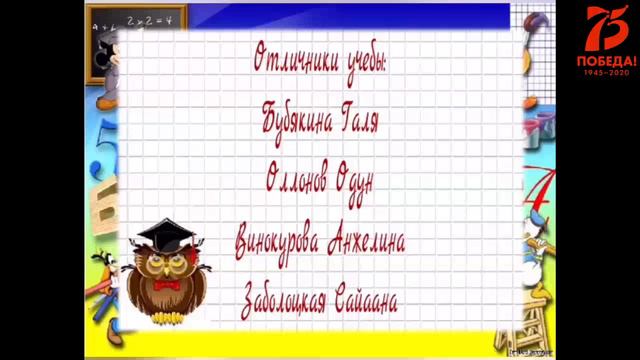 2 x 2 = 4
75
ПОБЕДА!
1945–2020
Отличники учебы:
Бубякина Галя
Оллонов Одун
Винокурова Анжелина
Заболоцкая Сайаана